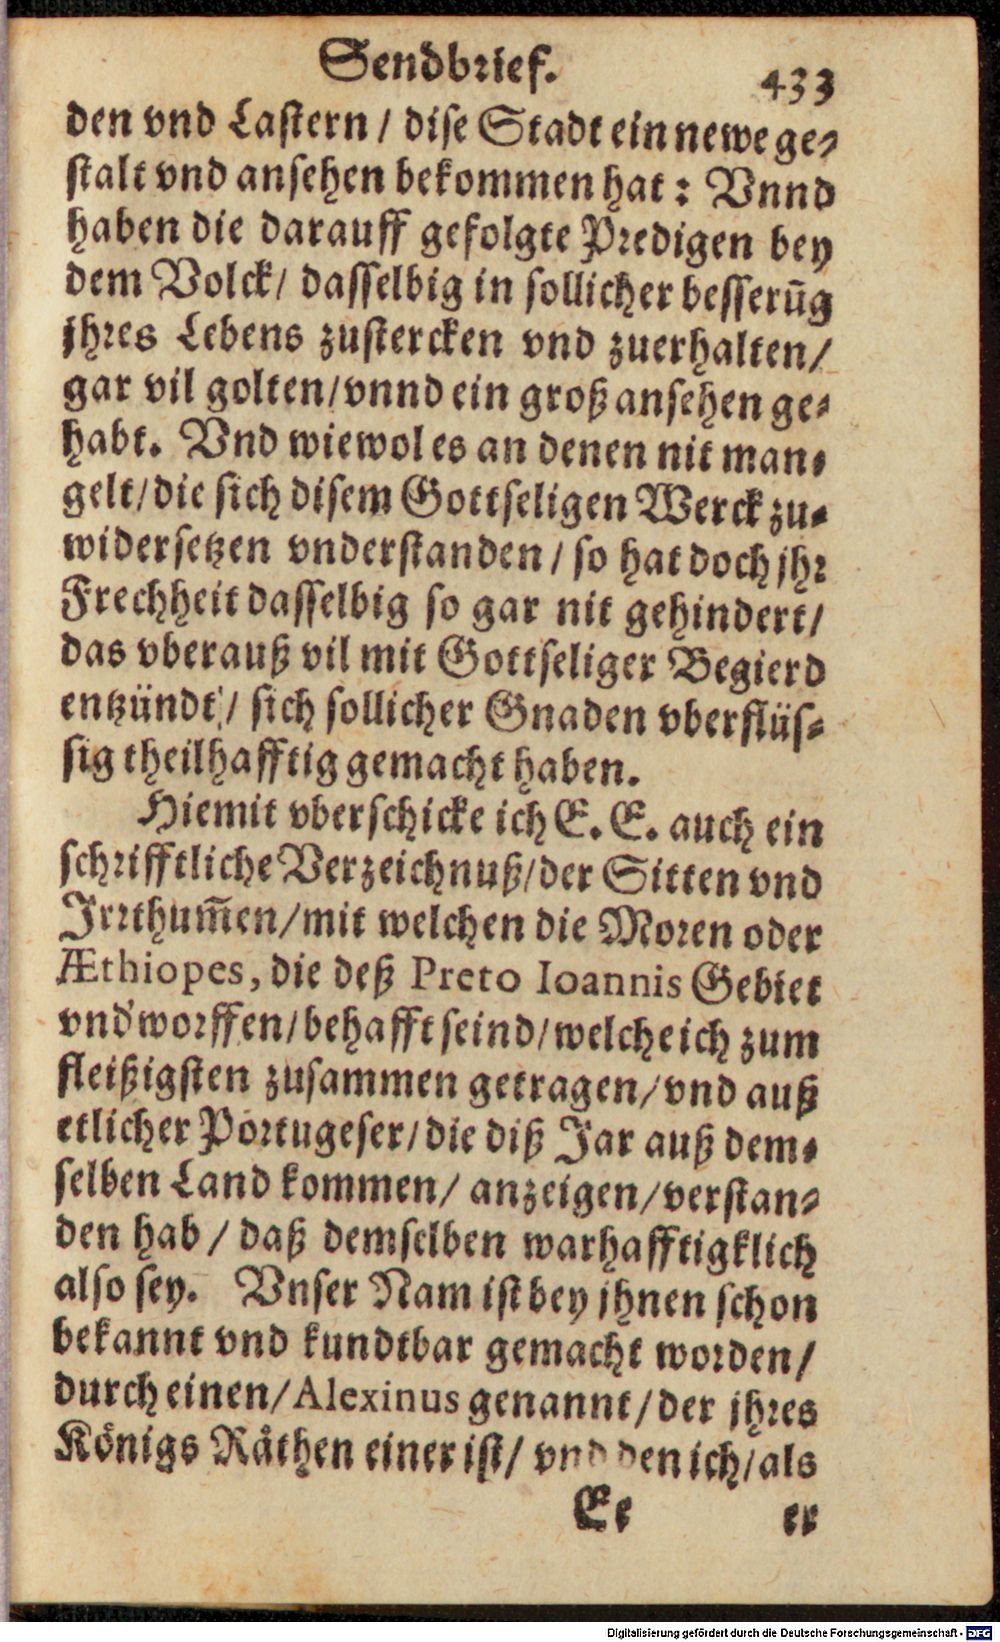 Sendbrief. 433
den vnd Lastern / dise Stadt ein newe ge-
stalt vnd ansehen bekommen hat: Vnnd
haben die darauff gefolgte Predigen bey
dem Volck / dasselbig in sollicher besserūg
jhres Lebens zustercken vnd zuerhalten /
gar vil golten / vnnd ein groß ansehen ge-
habt. Vnd wiewol es an denen nit man-
gelt / die sich disem Gottseligen Werck zu-
widersetzen vnderstanden / so hat doch jhr
Frechheit dasselbig so gar nit gehindert /
das vberauß vil mit Gottseliger Begierd
entzündt / sich sollicher Gnaden vberflüs-
sig theilhafftig gemacht haben.
Hiemit vberschicke ich E. E. auch ein
schrifftliche Verzeichnuß / der Sitten vnd
Irrthum̄en / mit welchen die Moren oder
Æthiopes, die deß Preto Ioannis Gebiet
vnd'worffen / behafft seind / welche ich zum
fleißigsten zusammen getragen / vnd auß
etlicher Portugeser / die diß Jar auß dem-
selben Land kommen / anzeigen / verstan-
den hab / daß demselben warhafftigklich
also sey. Vnser Nam ist bey jhnen schon
bekannt vnd kundtbar gemacht worden /
durch einen / Alexinus genannt / der jhres
Königs Räthen einer ist / vnd den ich / als
Ee er
Digitalisierung gefördert durch die Deutsche Forschungsgemeinschaft - DFG